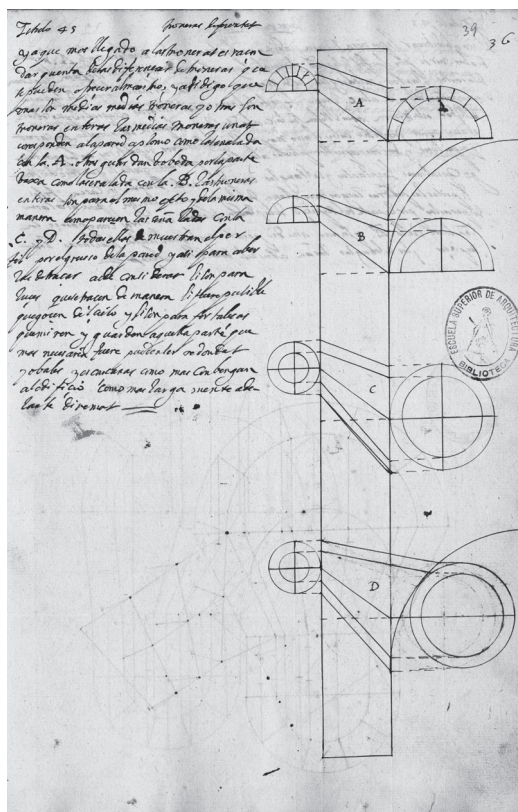 Título 45 Troneras diferentes
39
36
ya que mos llegado a las troneras es raçon
dar quenta de las diferençias de troneras que
se pueden ofrecer al maestro, y asi digo que
unas son medias troneras y otras son
troneras enteras las medias troneras unas
coresponden a la pared a plomo como la señalada
con la A. otras que dan bobeda por la parte
baxa como la señalada con la B. las troneras
enteras son para el mesmo efeto y de la misma
manera como pareçen las señaladas con la
C. y D. todas ellas muestran el per
fil por el grueso de la pared, y asi para aber
las de traçar a de considerar si son para
luces que se hacen de manera si fuere pusible
que goçen del cielo y si son para
y guarden aquella parte que
mas necesaria fuere pueden ser redondas
y obaladas como mas conbengan
al edificio como mas larga mente ade
lante diremos
A
A
B
C
D
ESCUELA SUPERIOR DE ARQUITECTURA
BIBLIOTECA